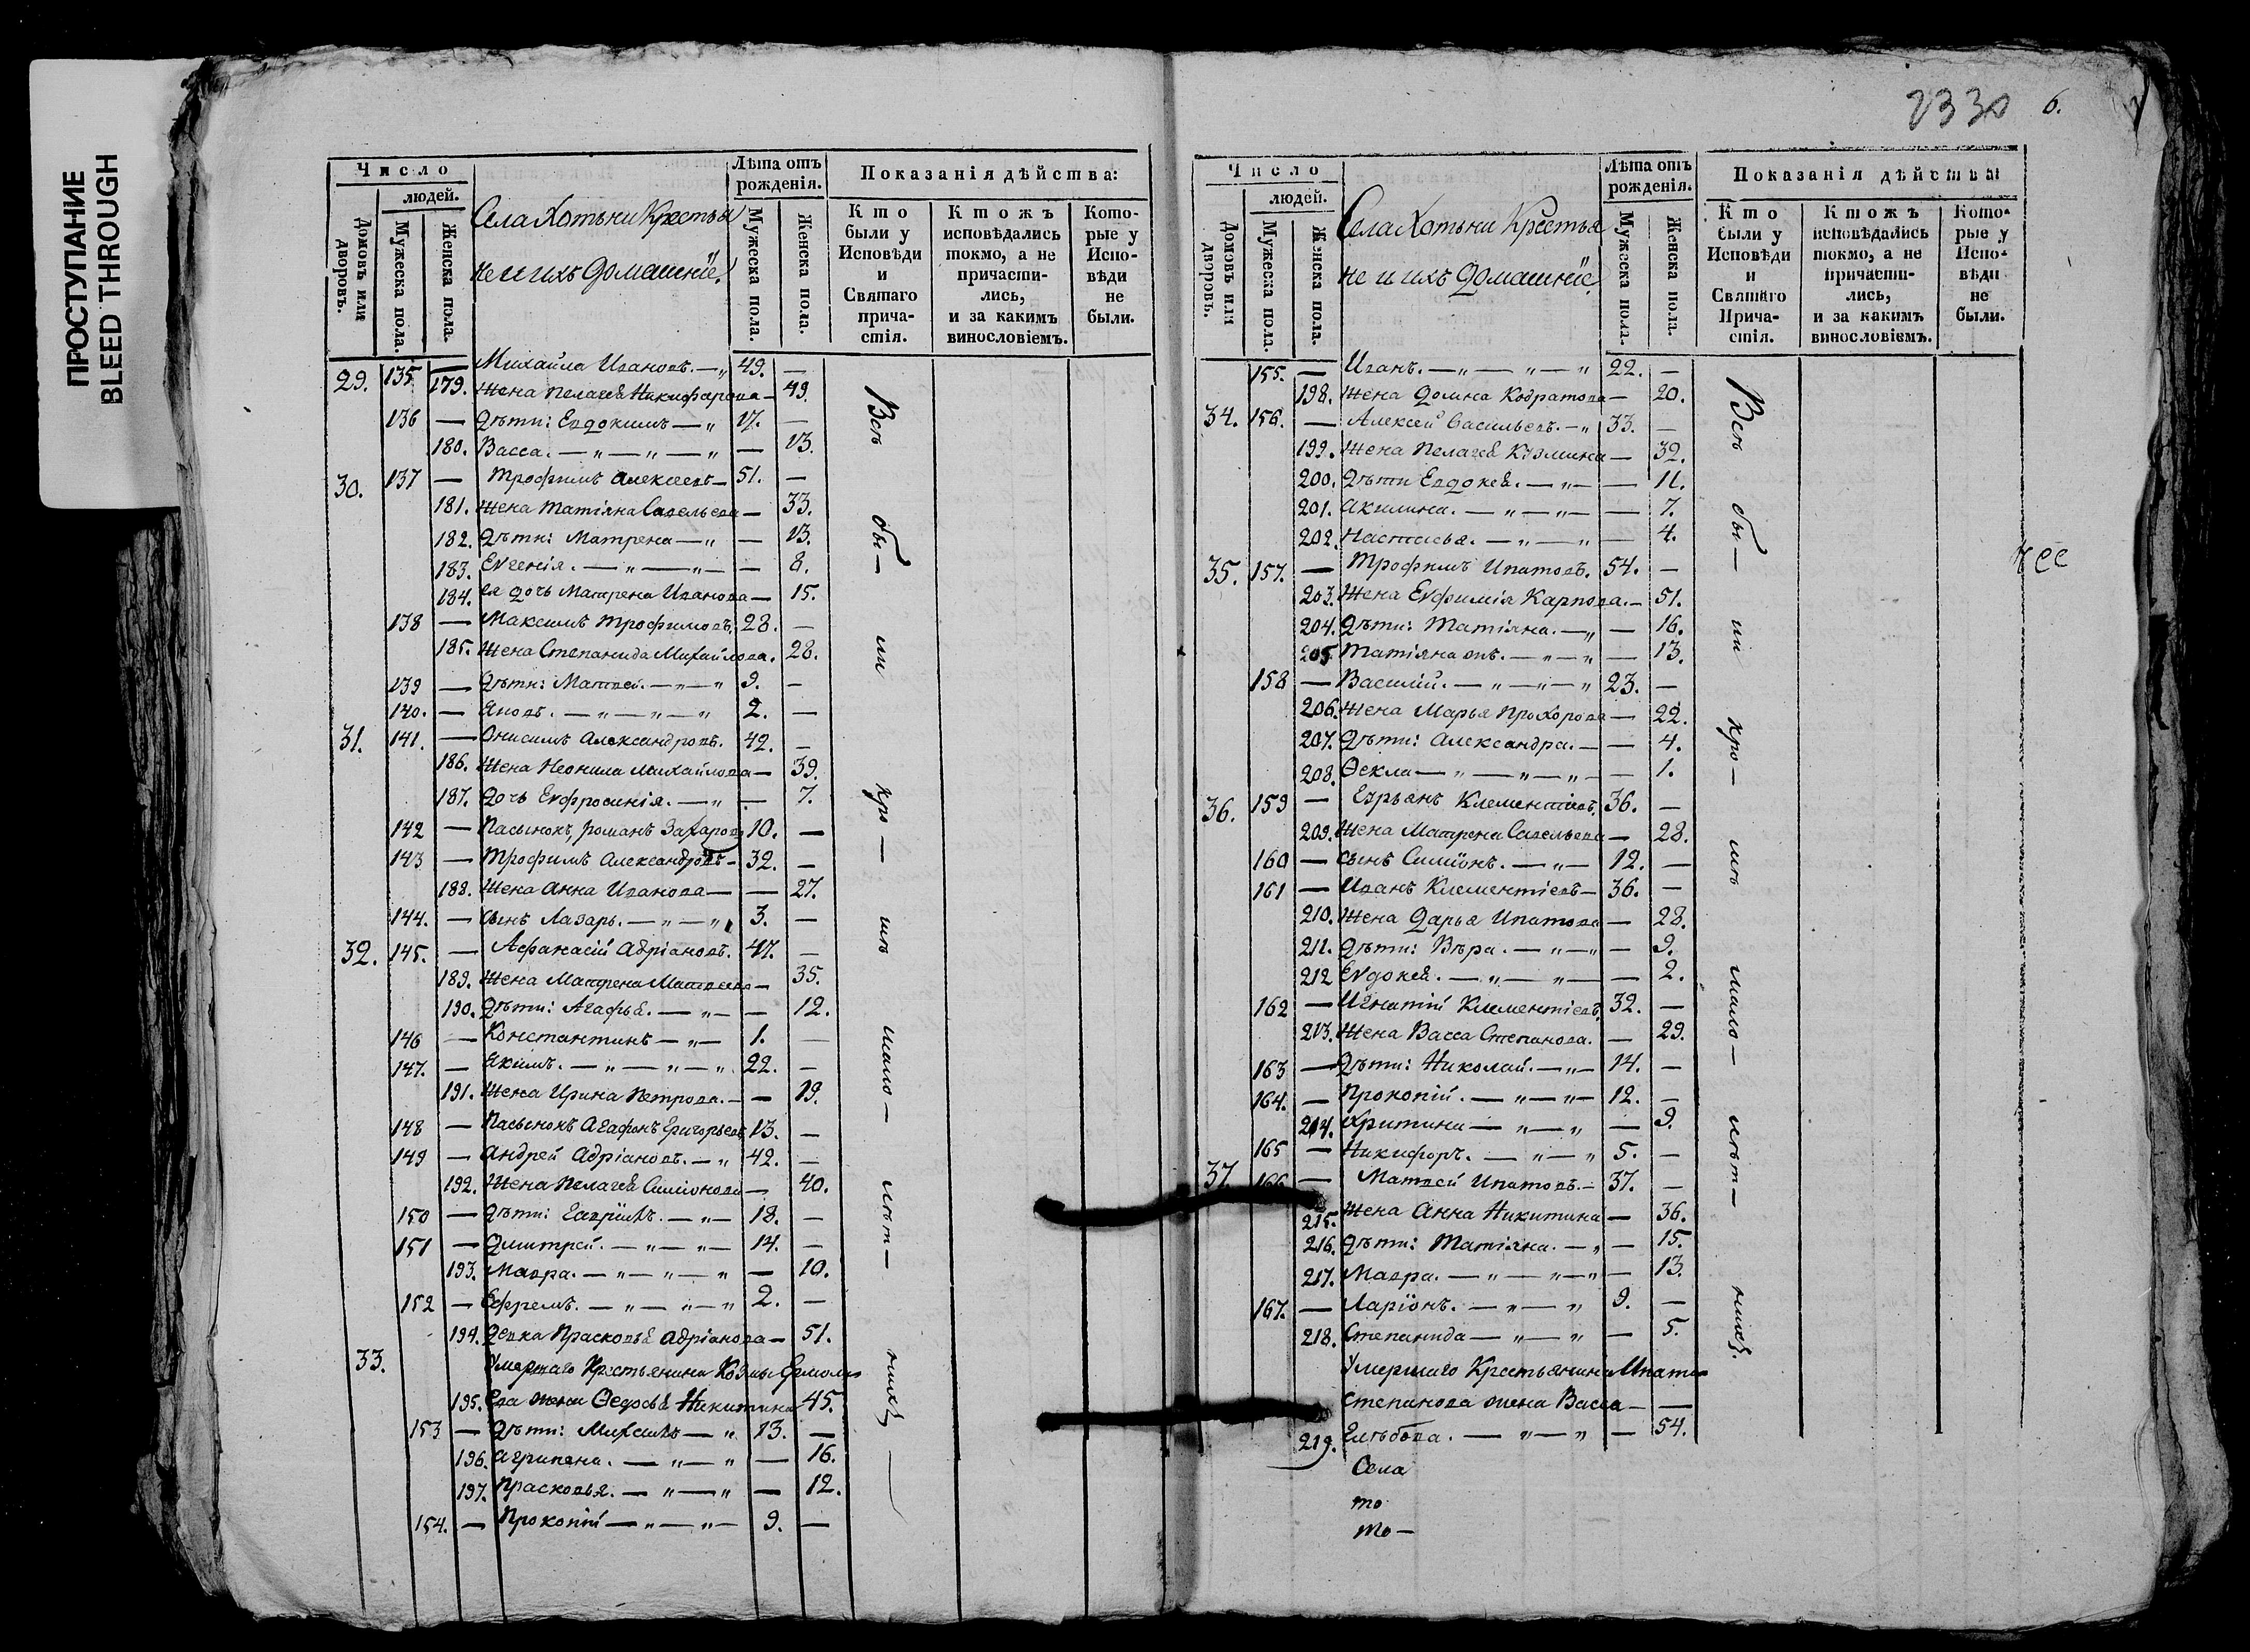 ПРОСТУПАНИЕ
BLEED THROUGH
Число
людей.
Домовъ или дворовъ.
Мужеска пола.
Женска пола.
Села Хотьни Крестья
не и ихъ домашніе.
Лѣта отъ рожденія.
Мужеска пола.
Женска пола.
Показанія дѣйства:
Кто были у Исповѣди и Святаго прича- стія.
Ктожъ исповѣдались токмо, а не причасти- лись, и за какимъ винословіемъ.
Кото- рые у Испо- вѣди не были.
29. 135 — Михайла Ивановъ. — „ 49. —
179. Жена Пелагея Никифорова — 49.
136 — Дѣти: Евдокимъ — „ 17. —
180. Васса. — „ — „ — „ — 13.
30. 137 — Трофимъ Алексеевъ — 51. —
181. Жена Татіяна Савельева — 33.
182. Дѣти: Матрена — „ — 13.
183. Евгенія. — „ — „ — — 8.
184. ея дочь Матрена Иванова — 15.
138 — Максимъ Трофимовъ. 28. —
185. Жена Степанида Михайлова. 28.
139 — Дѣти: Матвей. — „ — „ 9. —
140. — Яковъ. — „ — „ — „ 2. —
31. 141. — Онисимъ Александровъ. 42. —
186. Жена Неонила Михайлова — 39.
187. Дочь Евфросинія. — „ — 7.
142 — Пасынокъ, Романъ Захаровъ 10. —
143 — Трофимъ Александровъ — 32. —
188. Жена Анна Иванова — — 27.
144. — Сынъ Лазарь. — „ — „ 3. —
32. 145. — Афанасій Адріановъ. 47. —
189. Жена Матрена Матвеева — 35.
190. Дѣти: Агафья. — „ — — 12.
146 — Константинъ — „ — 1. —
147. — Якимъ. — „ — „ — „ 22. —
191. Жена Ирина Петрова. — — 19.
148 — Пасынокъ Агафонъ Григорьевъ 13. —
149 — Андрей Адріановъ. — „ 42. —
192. Жена Пелагея Симіонова — 40.
150 — Дѣти: Гаврїилъ. — „ — 18. —
151 — Дмитрей. — „ — „ — 14. —
193. Мавра. — „ — „ — „ — 10.
152 — Ефремъ. — „ — „ — „ 2. —
194. Девка Прасковья Адріанова — 51.
33. Умершаго Крестьянина Козмы Ермола
195. Ева жена Ѳедосья Никитина 45.
153 — Дѣти: Михаилъ — „ 13. —
196. Агрипена. — „ — „ — 16.
197. Прасковья. — „ — „ — 12.
154. — Прокопій — „ — „ — 9. —
Всѣ бы — ли кро — мѣ мало — лѣт — нихъ —
2330 6.
Число
людей.
Домовъ или дворовъ.
Мужеска пола.
Женска пола.
Села Хотьни Крестья
не и ихъ домашніе.
Лѣта отъ рожденія.
Мужеска пола.
Женска пола.
Показанія дѣйства
Кто были у Исповѣди и Святаго Прича- стія.
Ктожъ исповѣдались токмо, а не причасти- лись, и за какимъ винословіемъ.
Кото- рые у Испо- вѣди не были.
155. — Иванъ. — „ — „ — „ 22. —
198. Жена Домна Кодратова — 20.
34. 156. — Алексей Васильевъ. — „ 33. —
199. Жена Пелагея Кузмина — 32.
200. Дѣти Евдокея. — „ — — 11.
201. Акилина. — „ — „ — — 7.
202. Настасья. — „ — „ — 4.
35. 157. — Трофимъ Ипатовъ. 54. —
203. Жена Евфимія Карпова. — 51.
204. Дѣти: Татіяна. — „ — 16.
205. Татіяна жъ. — „ — „ — 13.
158 — Василій. — „ — „ — „ 23. —
206. Жена Марья Прохорова — 22.
207. Дѣти: Александра. — — 4.
208. Ѳекла — „ — „ — „ — — 1.
36. 159 — Евръянъ Клементіевъ. 36. —
209. Жена Матрена Савельева — 28.
160 — сынъ Симіонъ. — „ — 12. —
161 — Иванъ Клементіевъ — 36. —
210. Жена Дарья Ипатова — 28.
211. Дѣти: Вѣра. — „ — „ — 9.
212 Евдокея. — „ — „ — — 2.
162 — Игнатій Клементіевъ. 32. —
213. Жена Васса Степанова. — 29.
163 — Дѣти: Николай. — „ — 14. —
164. — Прокопій. — „ — „ — 12. —
214. Хритина — „ — „ — 9.
165 — Никифоръ. — „ — „ 5. —
37 166 — Матвей Ипатовъ. — 37. —
215. Жена Анна Никитина — 36.
216. Дѣти: Татіяна. — „ — 15.
217. Мавра. — „ — „ — „ — 13.
167. — Ларїонъ. — „ — „ 9. —
218. Степанида — „ — „ — 5.
Умершаго Крестьянина Ипата
Степанова жена Васса — —
219. Глѣбова. — „ — „ — 54.
Села
то
то —
Всѣ бы — ли кро — мѣ мало — лѣт — нихъ.